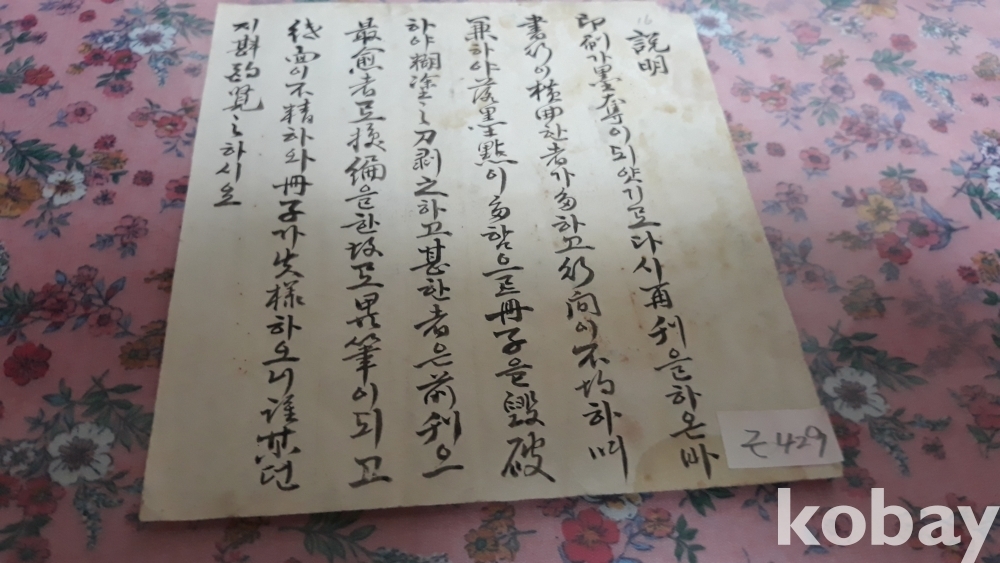 16
說明
即刷가墨奪이되얏기로다시再刊을하온바
書行이橫曲한者가多하고行間이不均하며
兼하야落墨點이多함으로冊子을毁破
하야糊塗之刀剥之하고甚한者은前刊으
最愈者로援編을한故로異筆이되고
線面이不精하와冊子가失樣하오니謹
지斟 覽之하시오
근429
kobay